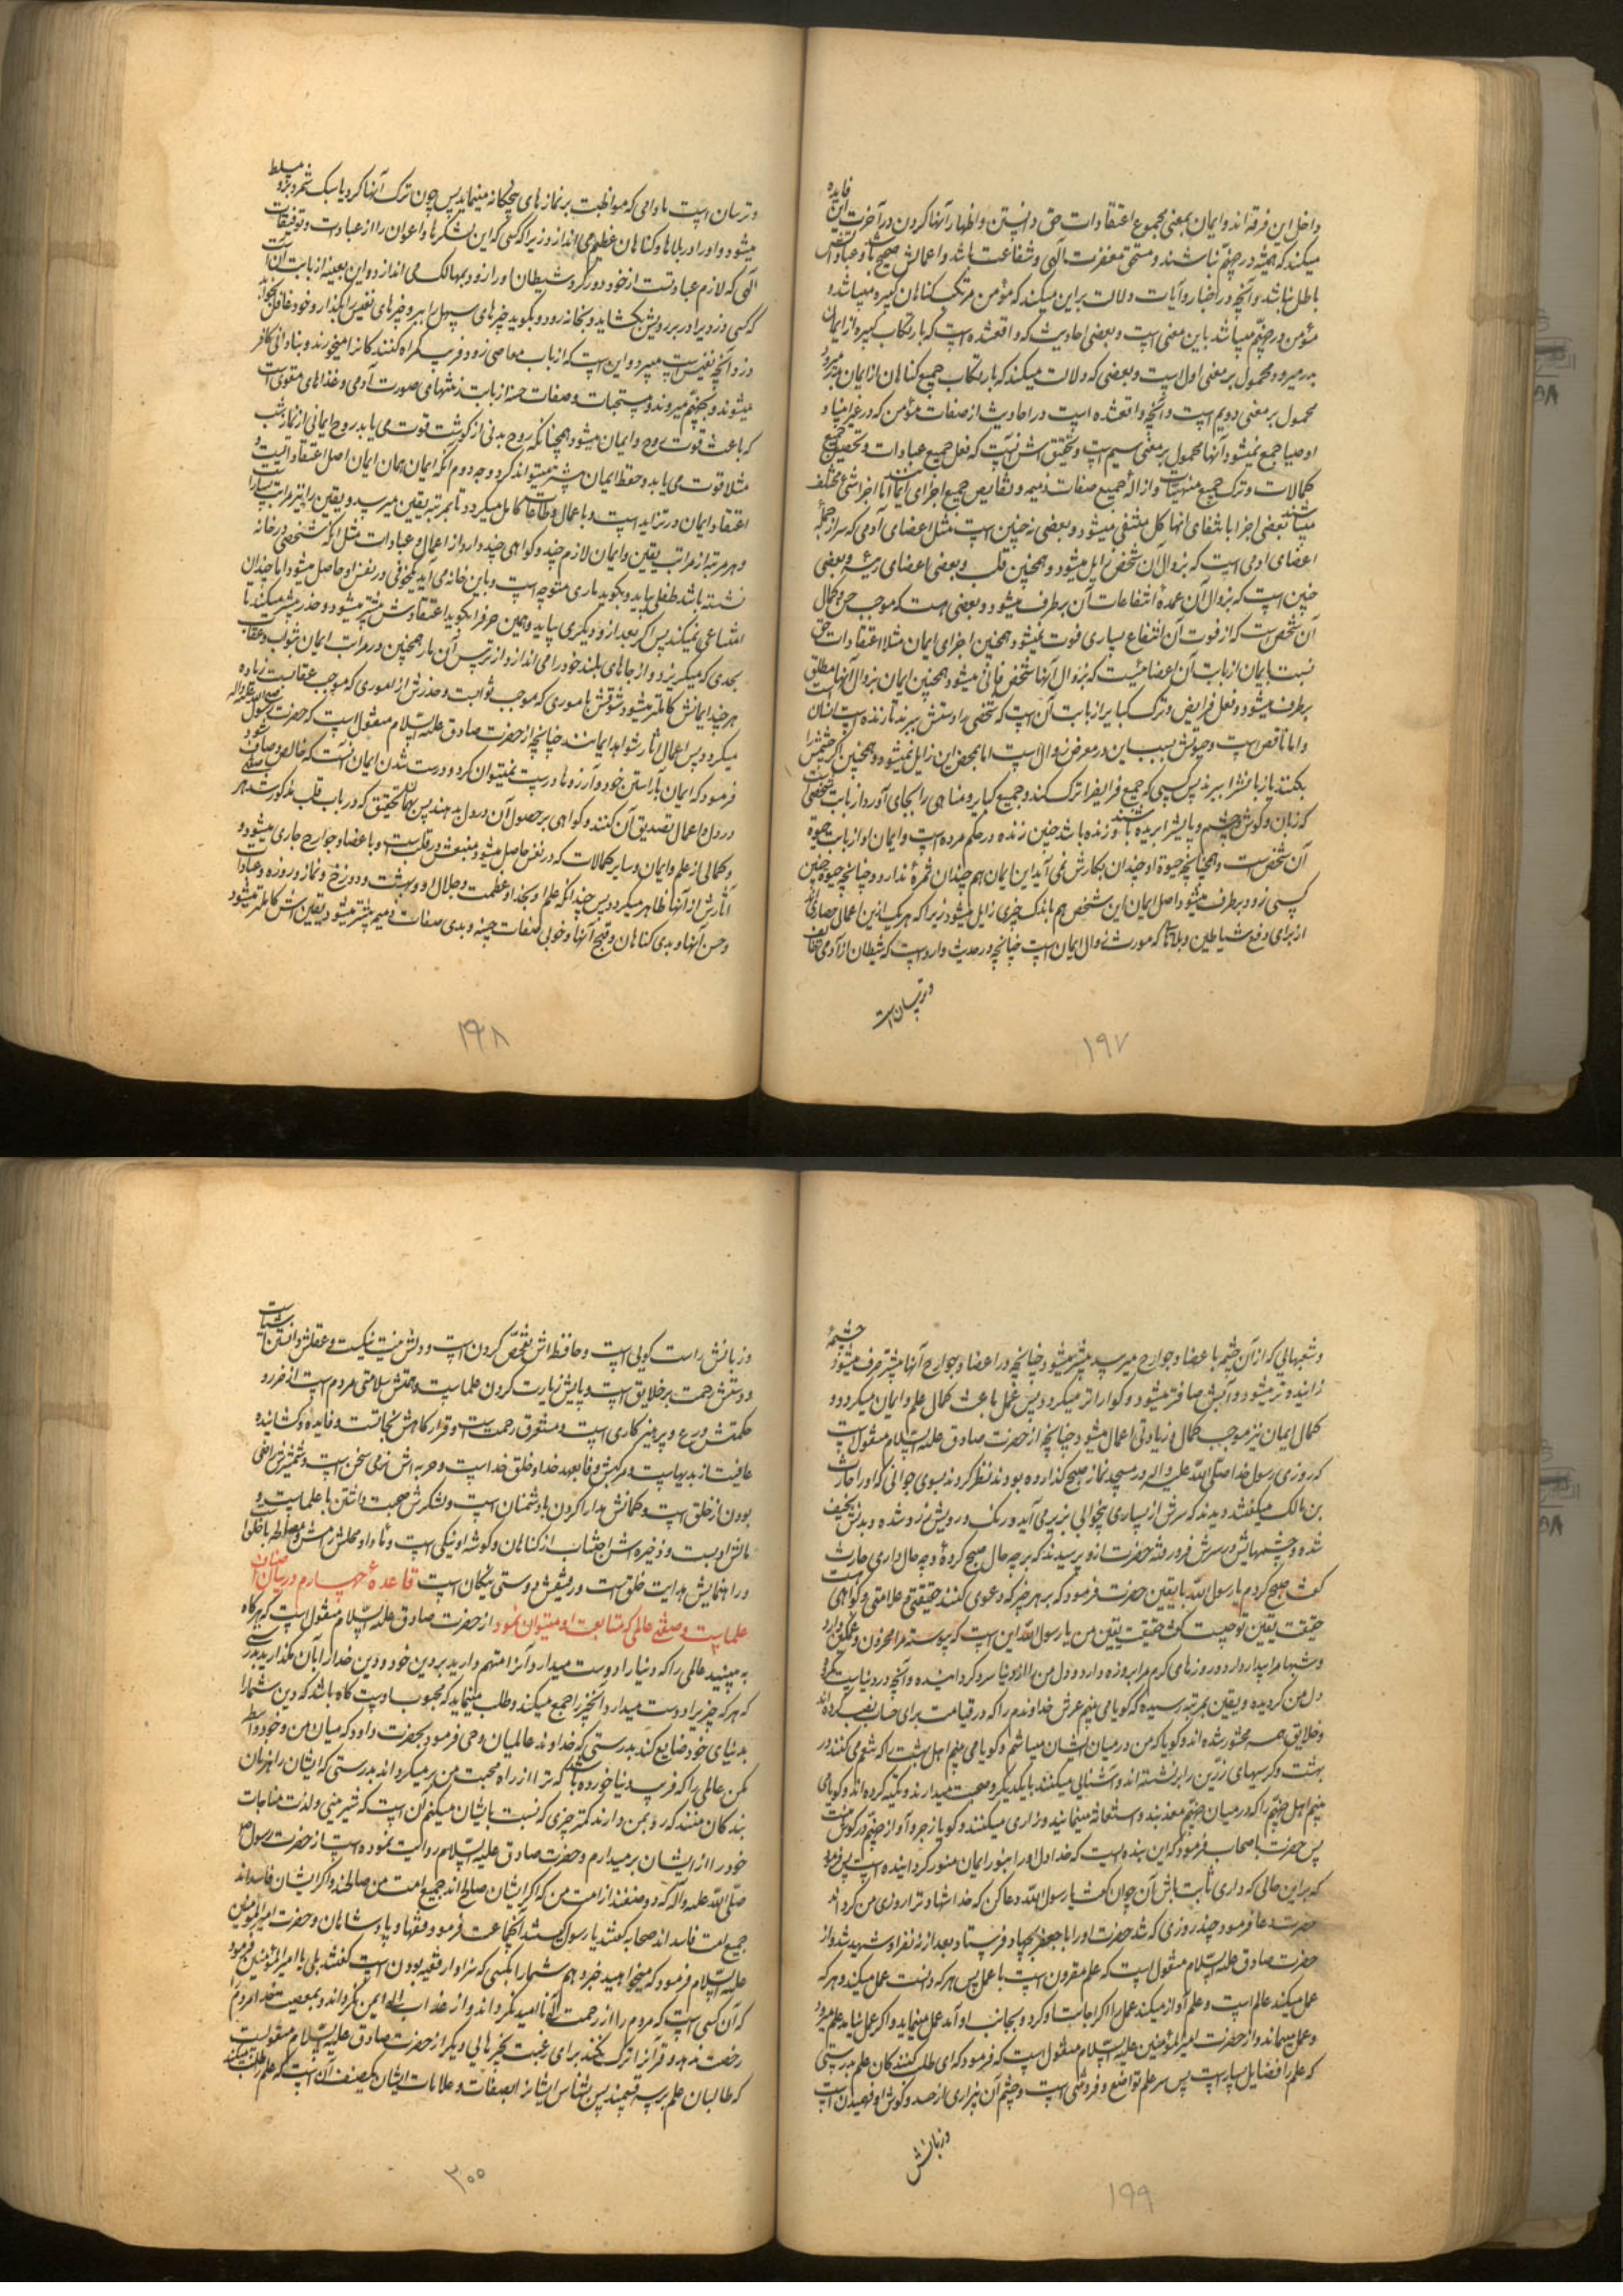 داخل این فرقه اند و ایمان بمعنی مجموع اعتقادات حق دانستن و اظهار آنها کردن در آخرت این فایده
میکند که همیشه در جهنم نباشند و مستحق مغفرت الهی و شفاعت باشد و اعمالش صحیح باشد و عباداتش
باطل نباشد و آنچه در اخبار و آیات دلالت بر این میکند که مؤمن مرتکب کناهان کبیره میباشد و
مؤمن در جهنم میباشد باین معنی است و بعضی احادیث که واقع شده است که بارتکاب کبیره از ایمان
بدر میرود محمول بر معنی اول است و بعضی که دلالت میکند که بارتکاب جمیع کناهان از ایمان بدر میرود
محمول بر معنی دویم است و آنچه واقع شده است در احادیث از صفات مؤمن که در غیر انبیا و
اوصیا جمع نمیشود آنها محمول بر معنی سیم است و تحقیقش آنست که فعل جمیع عبادات و تحصیل جمیع
کمالات و ترک جمیع منهیات و ازاله جمیع صفات ذمیمه و نقایص جمیع اجزای ایمانند اما اجزاش مختلف
میباشند بعضی اجزا بانتفای آنها کل منتفی میشود و بعضی نه چنین است مثل اعضای آدمی که سر از جمله
اعضای آدمی است که بزوال آن شخص زایل میشود و همچنین قلب و بعضی اعضای رئیسه و بعضی
چنین است که بزوال آن عمده انتفاعات آن برطرف میشود و بعضی هست که موجب حسن و کمال
آن شخص است که از فوت آن انتفاع بسیاری فوت نمیشود همچنین اجزای ایمان مثلا اعتقادات حق
نسبت بایمان از بابت آن اعضائیست که بزوال آنها شخص فانی میشود همچنین ایمان بزوال آنها مطلق
برطرف میشود و فعل فرایض و ترک کبایر از بابت آن است که شخصی را دستش ببرند تا زنده است انسان است
و اما ناقص است و حیوتش بسبب این در معرض زوال است اما بمحض این زایل نمیشود و همچنین اگر چشمش را
بکنند یا زبانش را ببرند پس کسی که جمیع فرایض را ترک کند و جمیع کبایر و مناهی را بجای آورد از بابت شخصی است
که زبان و کوش و چشم و پایش را بریده باشند و زنده باشد چنین زنده در حکم مرده است و ایمان او از بابت حیوة
آن شخص است و همچنانچه حیوة او چندان بکارش نمی آید این ایمان هم چندان ثمره ندارد و چنانچه حیوة چنین
کسی زود برطرف میشود اصل ایمان این شخص هم باندک چیزی زایل میشود زیرا که هر یک از این اعمال حصاری اند
از برای دفع شیاطین و بلاها که مورث زوال ایمان است چنانچه در حدیث وارد است که شیطان از آدمی خائف
و ترسان است
۱۹۷
و ترسان است مادامی که مواظبت بر نمازهای پنجکانه مینماید پس چون ترک آنها کرد یا سبک شمرد بر او مسلط
میشود و او را در بلاها و کناهان عظیم می اندازد زیرا که کسی که این لشکرها و اعوان را از عبادات و توفیقات
الهی که لازم عبادتست از خود دور کرد شیطان او را زود بمهالک می اندازد و این بعینه از بابت آن است
که کسی دزدی را در بر رویش بکشاید و بخانه رود و بکوید چیزهای سهل را ببر و چیزهای نفیس را بکذار و خود غافل بخوابد
دزد آنچه نفیس است میبرد و این است که ارباب معاصی زود فریب کمراه کنندکان را میخورند و بنادانی کافر
میشوند و بجهنم میروند و مستحبات و صفات حسنه از بابت زینتهای صورت آدمی و غذاهای مقوی است
که باعث قوت روح و ایمان میشود همچنانکه روح بدنی از کوشت قوت می یابد روح ایمانی از نماز شب
مثلا قوت می یابد و حفظ ایمان بیشتر میتواند کرد وجه دوم آنکه ایمان همان ایمان اصل اعتقاداتست و
اعتقاد ایمان در تزاید است و باعمال و طاعات کامل میکردد تا بمرتبه یقین میرسد و یقین را نیز مراتب بسیار است
و هر مرتبه از مراتب یقین و ایمان لازم چند و کواهی چند دارد از اعمال و عبادات مثل آنکه شخصی در خانه
نشسته باشد طفلی بیاید و بکوید ماری متوجه است و باین خانه می آید یک خوفی در نفس او حاصل میشود اما چندان
امتناعی نمیکند پس اکر بعد از او دیکری بیاید و همین حرف را بکوید اعتقادش بیشتر میشود و حذر بیشتر میکند تا
بحدی که میکریزد و از جاهای بلند خود را می اندازد از ترس آن مار همچنین در مراتب ایمان بثواب و عقاب
هر چند ایمانش کاملتر میشود شوقش بامری که موجب ثوابست و حذرش از اموری که موجب عقابست زیاده
میکردد پس اعمال آثار و شواهد ایمانند چنانچه از حضرت صادق علیه السلام منقول است که حضرت رسول صلی الله علیه واله
فرمود که ایمان بآراستن خود و آرزوها درست نمیتوان کرد و درست شدن ایمان آنست که خالص و صاف شود
در دل و اعمال تصدیق آن کنند و کواهی بر حصول آن در دل بدهند پس بنابر تحقیق که در باب قلب مذکور شد هر
کمالی از علم و ایمان و سایر کمالات که در نفس حاصل میشود منبعش در قلب است و باعضا و جوارح جاری میشود و
آثارش از آنها ظاهر میکردد پس چندانکه علم او بخدا و عظمت و جلال او و بهشت و دوزخ و نماز و روزه و عبادات
و حسن آنها و بدی کناهان و قبح آنها و خوبی صفات حسنه و بدی صفات ذمیمه بیشتر میشود یقینش کاملتر میشود
۱۹۸
و شعبهائی که از آن چشمه باعضا و جوارح میرسد بیشتر میشود چنانچه در اعضا و جوارح آنها بیشتر صرف میشود چشمه
زاینده تر میشود و آبش صافتر میشود و کواراتر میکردد پس عمل باعث کمال علم و ایمان میکردد و
کمال ایمان نیز موجب کمال و زیادتی اعمال میشود چنانچه از حضرت صادق علیه السلام منقول است
که روزی رسول خدا صلی الله علیه واله در مسجد نماز صبح کذارده بودند نظر کردند بسوی جوانی که او را حارث
بن مالک میکفتند دیدند که سرش از بسیاری بیخوابی بزیر می آید و رنک و رویش زرد شده و بدنش نحیف
شده و چشمهایش در سرش فرو رفته حضرت از او پرسیدند که بر چه حال صبح کرده و چه حال داری حارث
کفت صبح کردم یا رسول الله با یقین حضرت فرمود که بر هر چیز که دعوی کنند حقیقتی و علامتی و کواهی است
حقیقت یقین تو چیست کفت حقیقت یقین من یا رسول الله این است که پیوسته مرا محزون و غمکین دارد
و شبها مرا بیدار دارد و روزهای کرم مرا بروزه دارد و دل من از دنیا سرد کردانیده و آنچه در دنیاست مکروه
دل من کردیده و یقین بمرتبه رسیده که کویا می بینم عرش خداوندم را که در قیامت برای حساب نصب کرده اند
و خلایق همه محشور شده اند و کویا که من در میان ایشان میباشم و کویا می بینم اهل بهشت را که تنعم می کنند در
بهشت و کرسیهای زرین را بر نشسته اند و آشنائی میکنند با یکدیکر و صحبت میدارند و تکیه کرده اند و کویا می
بینم اهل جهنم را که در میان جهنم معذبند و استغاثه مینمایند و زاری میکنند و کویا زجر و آواز جهنم در کوش منست
پس حضرت باصحاب فرمود که این بنده ایست که خدا دل او را بنور ایمان منور کردانیده است پس فرمود
که بر این حالی که داری ثابت باش آن جوان کفت یا رسول الله دعا کن که خدا شهادت را روزی من کرداند
حضرت دعا فرمود چند روزی که شد حضرت او را با جعفر بجهاد فرستاد و بعد از نه نفر او شهید شد و از
حضرت صادق علیه السلام منقول است که علم مقرون است با عمل پس هر که دانست عمل میکند و هر که
عمل میکند عالم است و علم آواز میکند عمل را اکر اجابت او کرد و بجانب او آمد عمل مینماید و اکر عمل نیاید علم میرود
و عمل میماند و از حضرت امیرالمؤمنین علیه السلام منقول است که فرمود که ای طلب کنندکان علم بدرستی
که علم را فضایل بسیار است پس سر علم تواضع و فروتنی است و چشم آن بیزاری از حسد و کوش او فهمیدن است
و زبانش
۱۹۹
و زبانش راست کوئی است و حافظه اش تفحص کردن است و دلش نیت نیکست و عقلش دانستن اشیاست
و دستش رحمت بر خلایق است و پایش زیارت کردن علماست و همتش سلامتی مردم است از ضرر او
حکمتش ورع و پرهیزکاری است و مستقرش رستکاریست و قرارکاهش نجاتست و فایده و کشاینده
عافیت از بدیهاست و مرکبش وفا بعهد خدا و خلق خداست و حربه اش نرمی سخن است و شمشیرش راضی
بودن از خلق است و کمانش مدارا کردن با دشمنان است و لشکرش صحبت داشتن با علماست و
مالش ادبست و ذخیره اش اجتناب از کناهان و توشه او نیکی است و ماوای او محلش مصالحه با خلق است
و راهنمایش هدایت خلق است و رفیقش دوستی نیکان است قاعدهٔ چهارم در بیان اصناف
علماست و صفت عالمی که متابعت او میتوان نمود از حضرت صادق علیه السلام منقول است که هرکاه
به بینید عالمی را که دنیا را دوست میدارد او را متهم دارید بر دین خود و دین خدا را بآن مکذارید بدرستی
که هر که چیزی را دوست میدارد آنچیز را جمع میکند و طلب مینماید که محبوب اوست کاه باشد که دین شما را
بدنیای خود ضایع کند بدرستی که خداوند عالمیان وحی فرمود بحضرت داود که میان من و خود واسطه
مکن عالمی را که فریب دنیا خورده باشد که ترا از راه محبت من بر میکرداند بدرستی که ایشان راهزنان
بندکان منند که رو بمن دارند کمتر چیزی که نسبت بایشان میکنم آن است که شیرینی و لذت مناجات
خود را از ایشان برمیدارم و حضرت صادق علیه السلام روایت نموده است از حضرت رسول
صلی الله علیه وآله که دو صنفند از امت من که اکر ایشان صالح اند جمیع امت من صالحند و اکر ایشان فاسداند
جمیع امت فاسد اند صحابه کفتند یا رسول الله کیستند آنجماعت فرمود فقها و پادشاهان و حضرت امیرالمؤمنین
علیه السلام فرمود که میخواهید خبر دهم شما را بکسی که سزاوار فقیه بودن است کفتند بلی یا امیرالمؤمنین فرمود
که آن کسی است که مردم را از رحمت الهی ناامید نکرداند و از عذاب الهی ایمن نکرداند و بمعصیت خدا مردم را
رخصت ندهد و قرآن را ترک نکند برای رغبت بچیزهای دیکر از حضرت صادق علیه السلام منقولست
که طالبان علم بر سه قسمند پس بشناس ایشان را بصفات و علامات ایشان یک صنف آن است که علم را طلب میکنند
۲۰۰